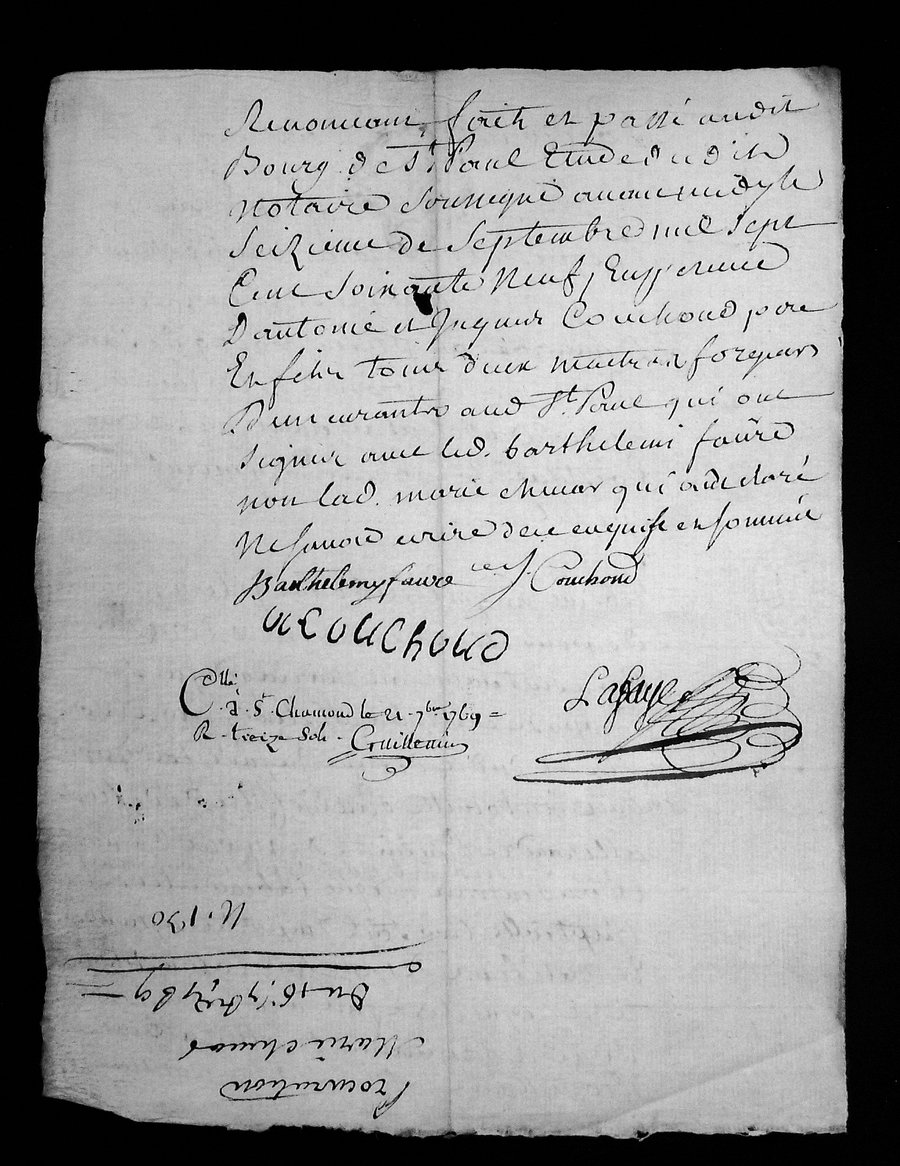 Renonceant, fait et passé audit
Bourg de St. Paul Etude dudit
Notaire soussigné avant midy le
Seizieme de Septembre mil sept
Cent soixante Neuf, En presence
D'antoine et Jaques Couchoud pere
Et fils tous deux maitres forgeurs
Demeurants aud. St. Paul qui ont
signés avec led. barthelemi faure
non lad. marie chmar qui a declaré
Ne savoir ecrire de ce enquise et sommée
Barthelemy faure J. Couchoud
A COUCHOUD
Lafaye
Cllé
à St. Chamond le 21. 7bre 1769 =
R. treize Sols. Guillemin
Procuration
Marie chmar
Du 16: 7bre 1769
N. 130